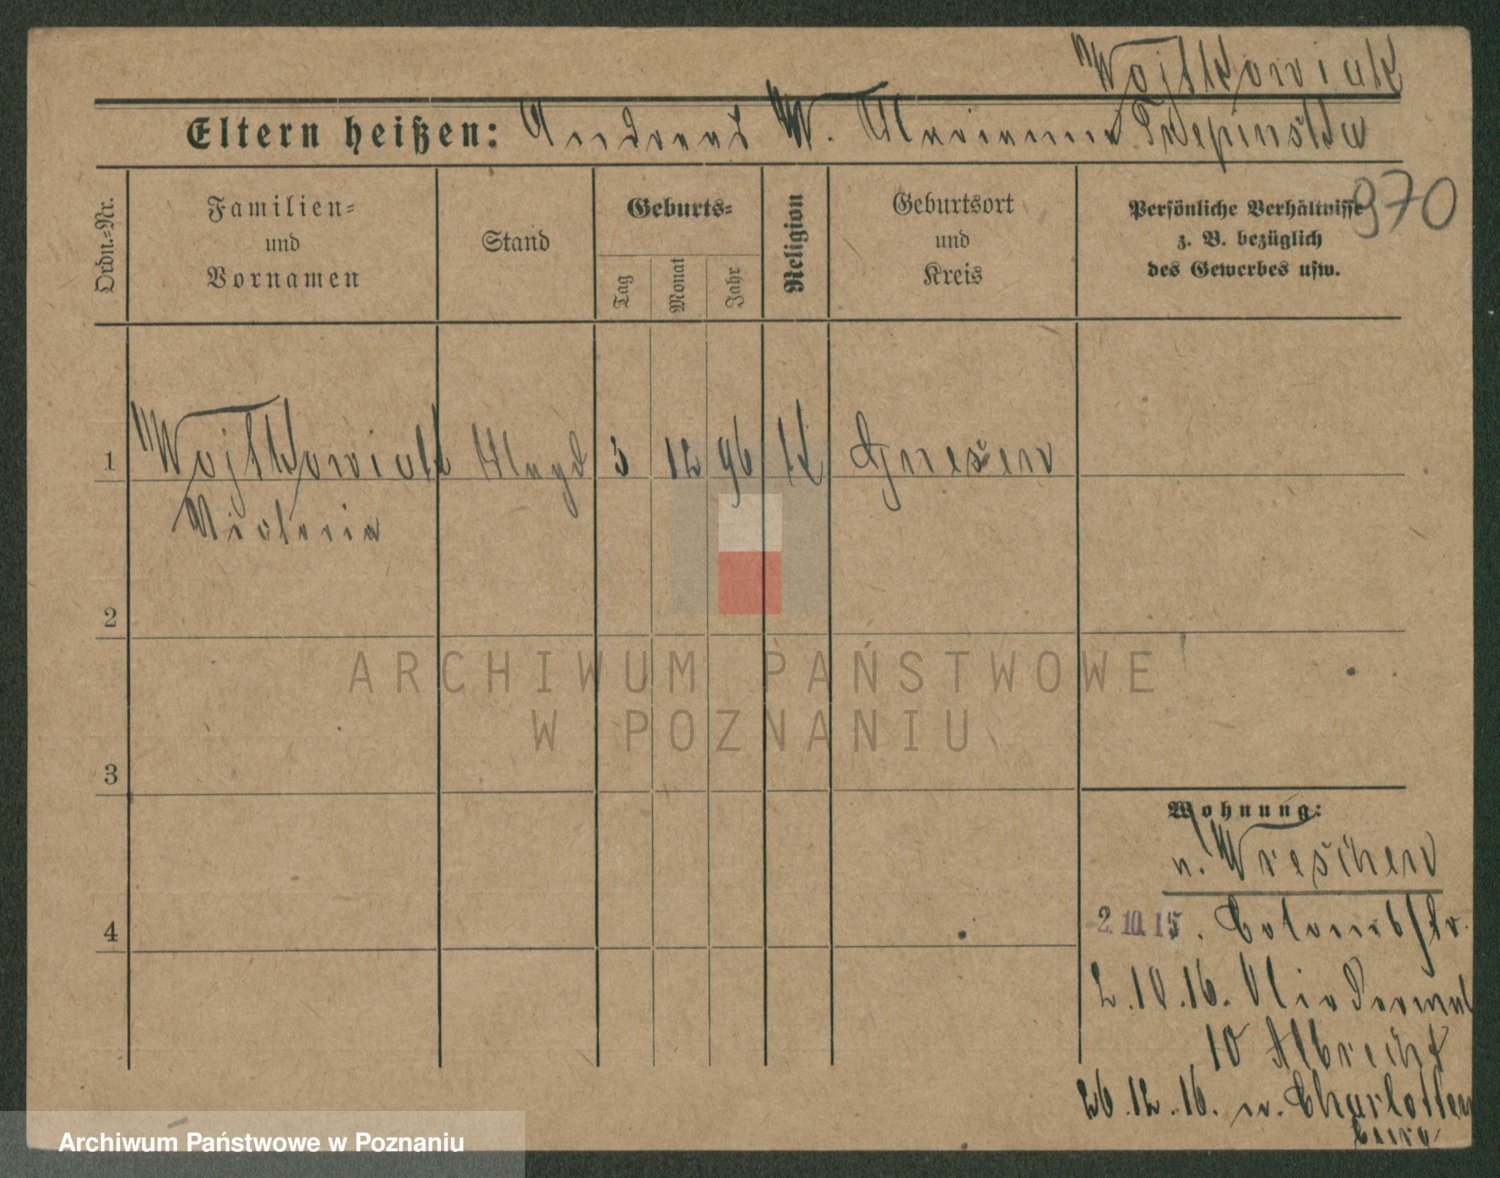 Wojtkowiak
Eltern heißen: Andreas W. Marianna Trepinska
970
Ordn.-Nr.
Familien-
und
Vornamen
Stand
Geburts-
Tag
Monat
Jahr
Religion
Geburtsort
und
Kreis
Persönliche Verhältnisse
z. B. bezüglich
des Gewerbes usw.
1 Wojtkowiak Magd 3 12 96 K Gnesen
Victoria
2
3
4
ARCHIWUM PAŃSTWOWE
W POZNANIU
Wohnung:
n. Wreschen
2.10.15.
2.10.16.
10 Albrecht
26.12.16. n. Charlotten
burg
Archiwum Państwowe w Poznaniu